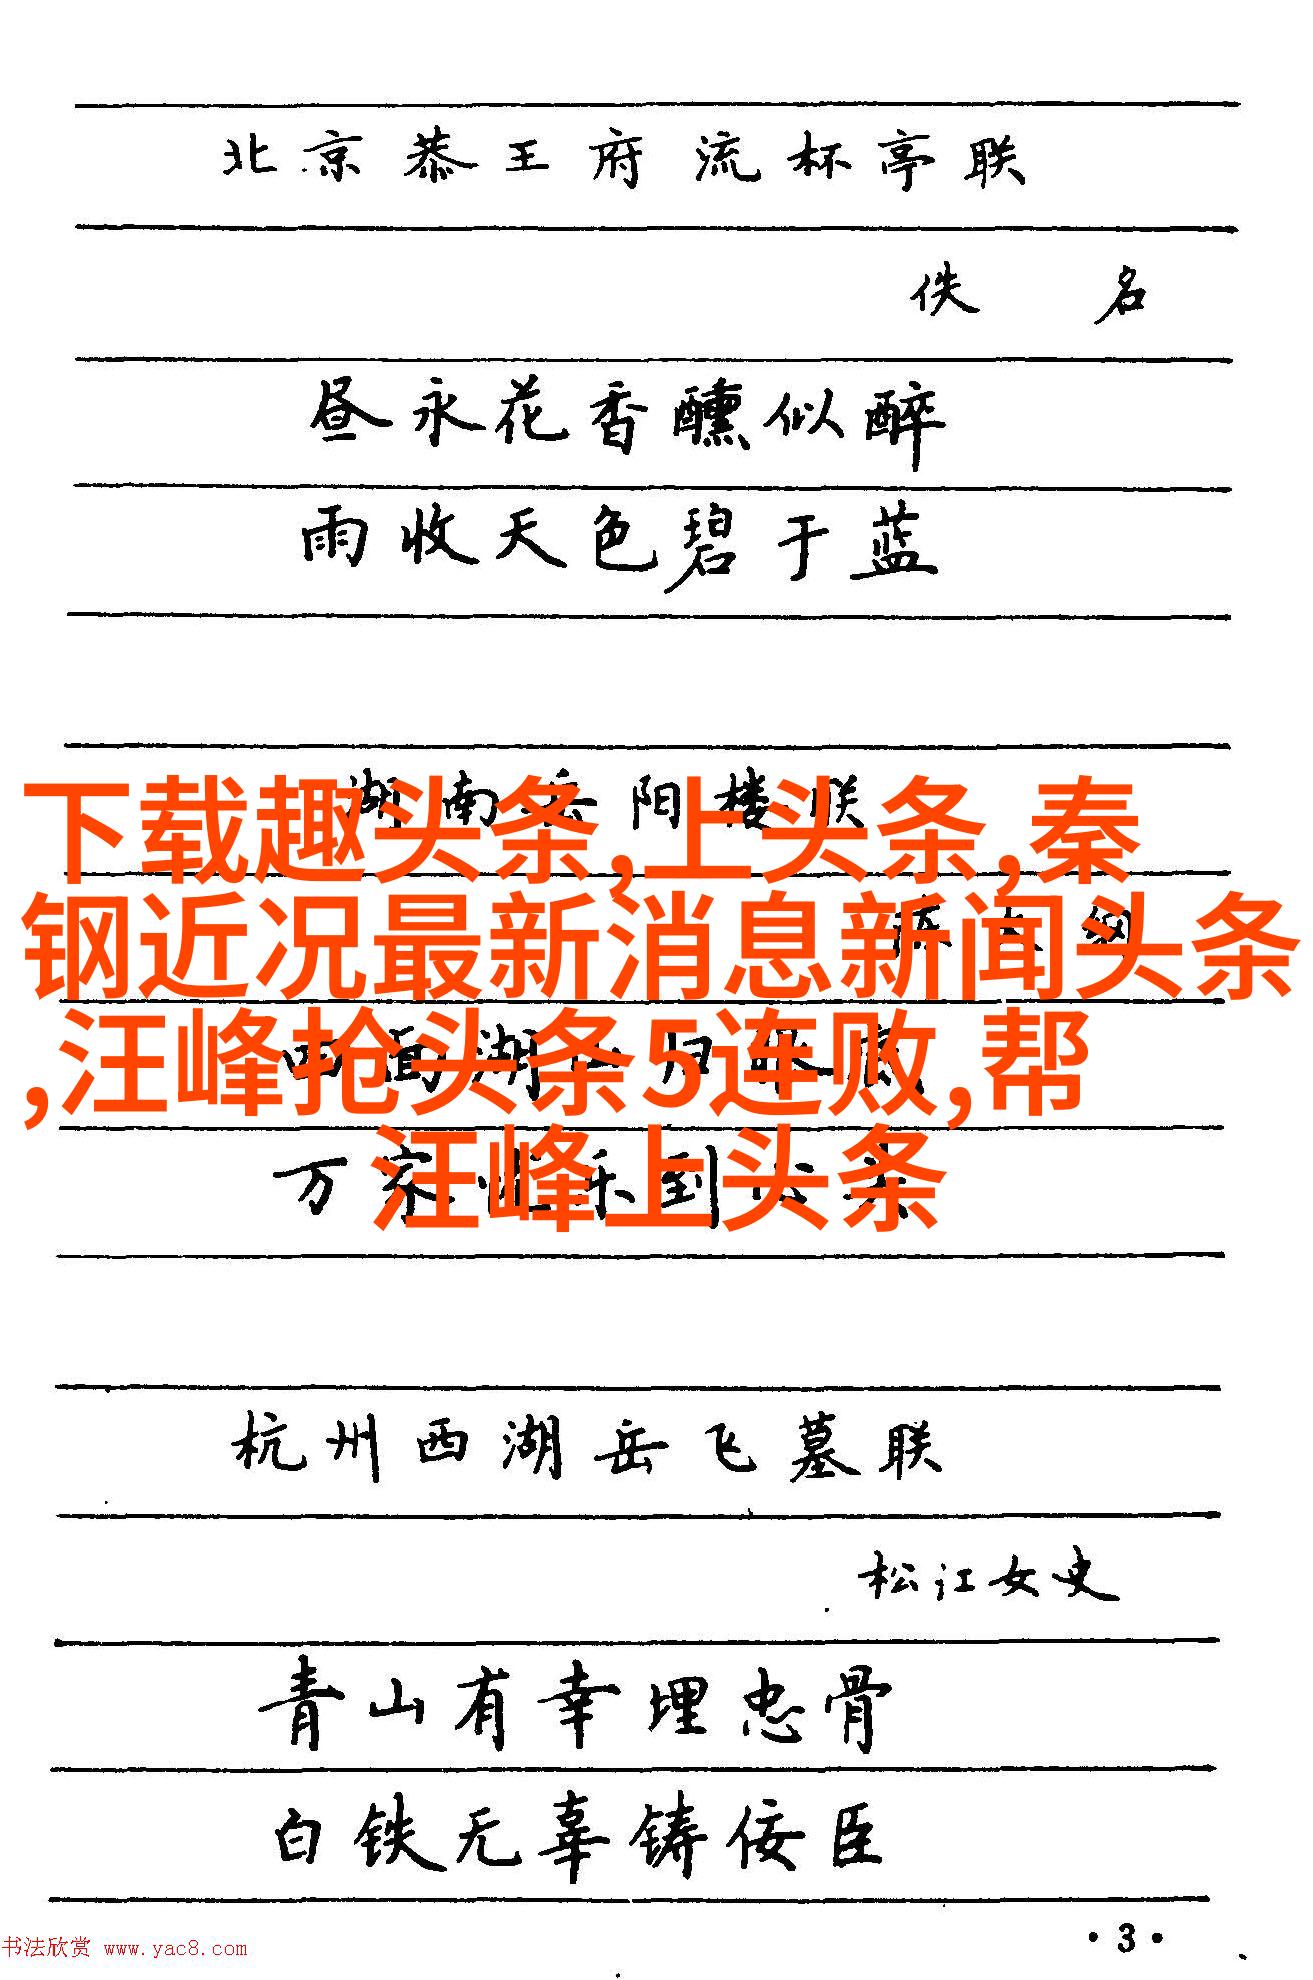 北京恭王府流杯亭联
佚名
昼永花香醺似醉
雨收天色碧于蓝
湖南岳阳楼联
下载趣头条,上头条,秦
钢近况最新消息新闻头条
,汪峰抢头条5连败,帮
汪峰上头条
万家忧乐到心头
杭州西湖岳飞墓联
松江女史
青山有幸埋忠骨
白铁无辜铸佞臣
·3·
书法欣赏 www.yac8.com